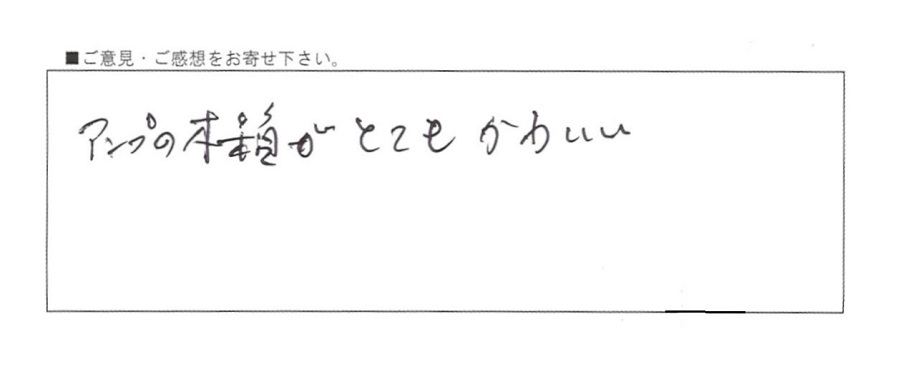 ■ご意見・ご感想をお寄せ下さい。
アンプの木箱がとてもかわいい